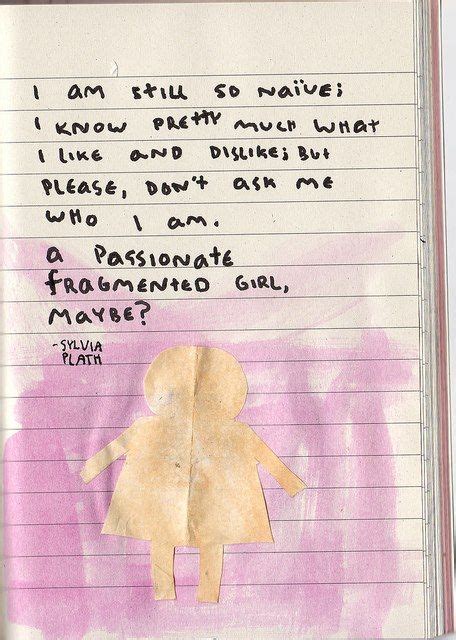 I AM STILL SO NAÏVE;
I KNOW PRETTY MUCH WHAT
I LIKE AND DISLIKE; BUT
PLEASE, DON'T ASK ME
WHO I AM.
a PASSIONATE
fRAGMENTED GIRL,
MAYBE?
-SYLVIA
PLATH